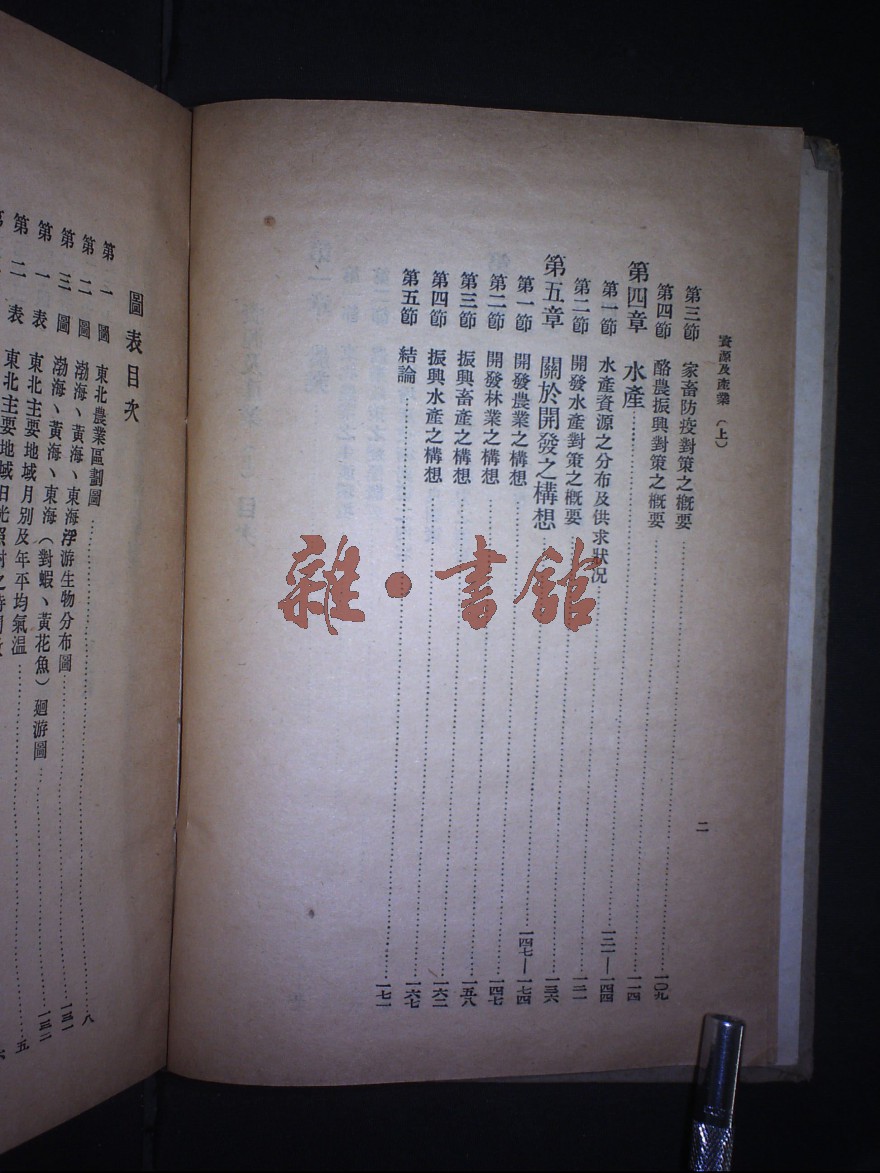 資源及產業（上）
二
第三節 家畜防疫對策之概要……一〇九
第四節 酪農振興對策之概要……一一四
第四章 水產……一三一—一四四
第一節 水產資源之分布及供求狀況……一三一
第二節 開發水產對策之概要……一三六
第五章 關於開發之構想……一四七—一七四
第一節 開發農業之構想……一四七
第二節 開發林業之構想……一五八
第三節 振興畜產之構想……一六二
第四節 振興水產之構想……一六七
第五節 結論……一七一
雜·書館
圖表目次
第一圖 東北農業區劃圖……八
第二圖 渤海、黃海、東海浮游生物分布圖……一三一
第三圖 渤海、黃海、東海（對蝦、黃花魚）廻游圖……一三二
第一表 東北主要地域月別及年平均氣溫……五
第二表 東北主要地域日光照射之時間